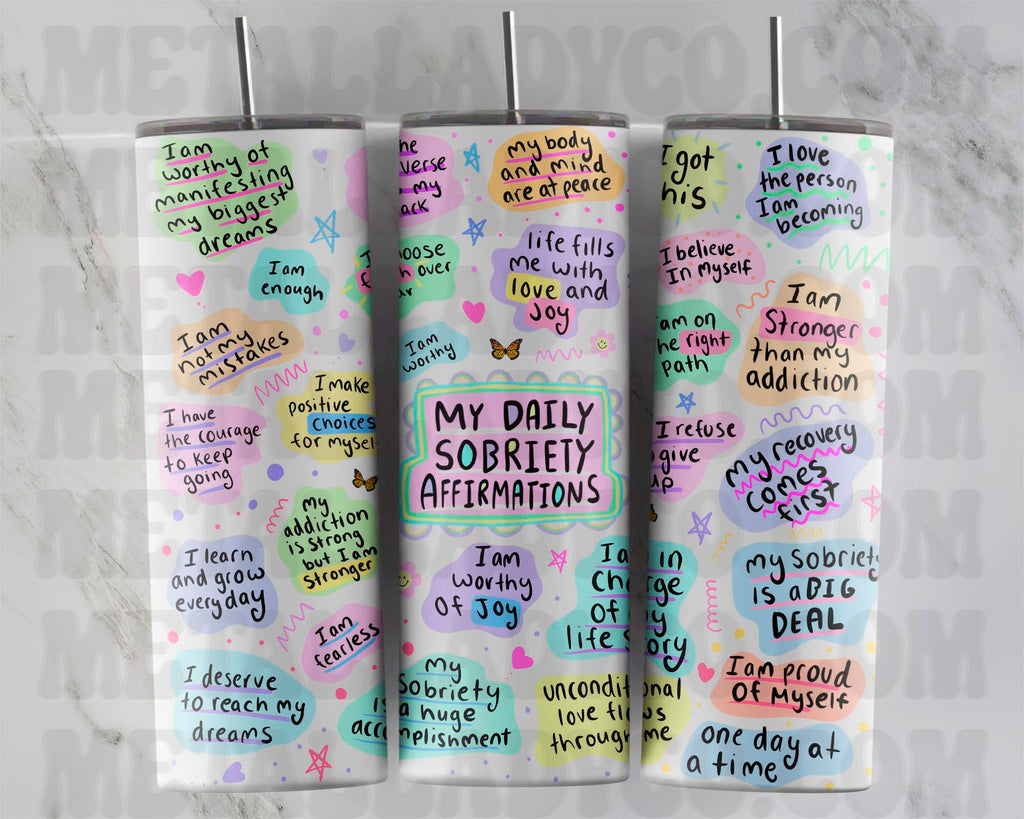 METALLADYCO.COM
I am
worthy of
manifesting
my biggest
dreams
I am
enough
I am
not my
mistakes
I make
positive
choices
for myself
I have
the courage
to keep
going
my
addiction
is strong
but I am
stronger
I learn
and grow
everyday
I am
fearless
I deserve
to reach my
dreams
he
verse
my
ack
my body
and mind
are at peace
oose
over
life fills
me with
love and
joy
I am
worthy
MY DAILY
SOBRIETY
AFFIRMATIONS
I am
worthy
of joy
I am in
charge
of my
life story
my
sobriety
is a huge
accomplishment
unconditional
love flows
through me
I got
his
I love
the person
I am
becoming
I believe
In myself
am on
he right
path
I am
Stronger
than my
addiction
I refuse
o give
up
my recovery
comes
first
my sobriety
is a BIG
DEAL
I am proud
of myself
one day at
a time